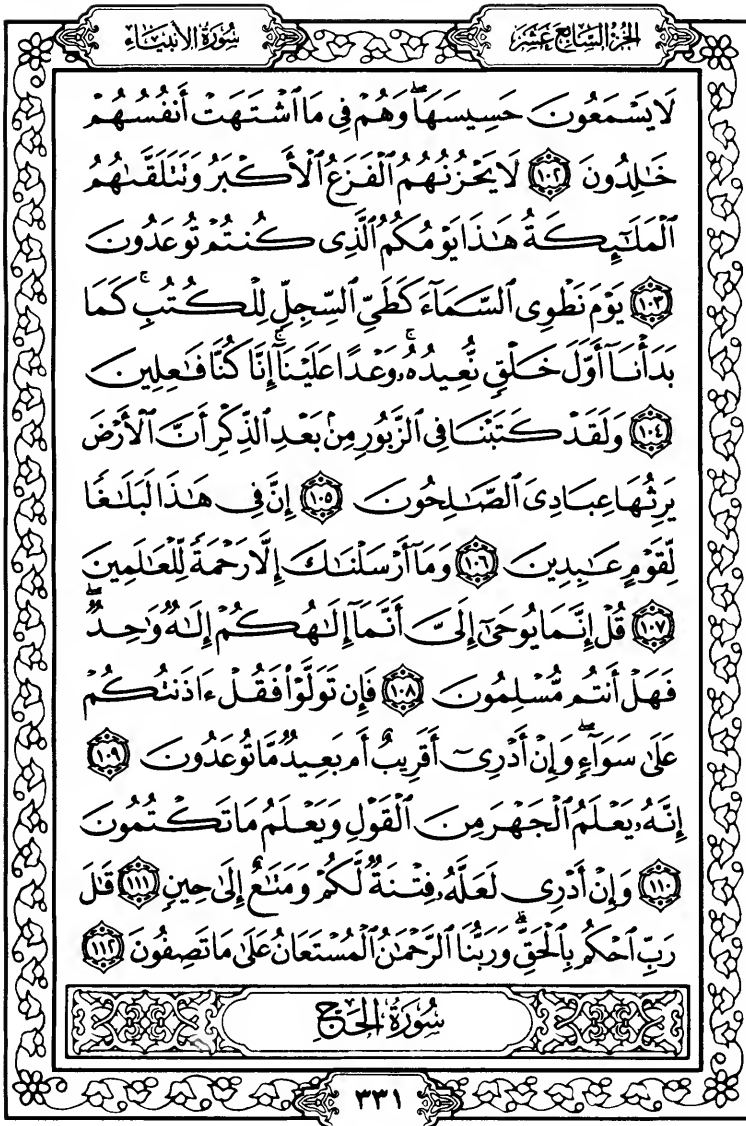 سُورَةُ الأَنبِيَاءِ
الجُزْءُ السَّابِعَ عَشَرَ
لَا يَسْمَعُونَ حَسِيسَهَا ۖ وَهُمْ فِى مَا ٱشْتَهَتْ أَنفُسُهُمْ
خَٰلِدُونَ ١٠٢ لَا يَحْزُنُهُمُ ٱلْفَزَعُ ٱلْأَكْبَرُ وَتَتَلَقَّىٰهُمُ
ٱلْمَلَٰٓئِكَةُ هَٰذَا يَوْمُكُمُ ٱلَّذِى كُنتُمْ تُوعَدُونَ
١٠٣ يَوْمَ نَطْوِى ٱلسَّمَآءَ كَطَىِّ ٱلسِّجِلِّ لِلْكُتُبِ ۚ كَمَا
بَدَأْنَآ أَوَّلَ خَلْقٍ نُّعِيدُهُۥ ۚ وَعْدًا عَلَيْنَآ ۚ إِنَّا كُنَّا فَٰعِلِينَ
١٠٤ وَلَقَدْ كَتَبْنَا فِى ٱلزَّبُورِ مِنۢ بَعْدِ ٱلذِّكْرِ أَنَّ ٱلْأَرْضَ
يَرِثُهَا عِبَادِىَ ٱلصَّٰلِحُونَ ١٠٥ إِنَّ فِى هَٰذَا لَبَلَٰغًا
لِّقَوْمٍ عَٰبِدِينَ ١٠٦ وَمَآ أَرْسَلْنَٰكَ إِلَّا رَحْمَةً لِّلْعَٰلَمِينَ
١٠٧ قُلْ إِنَّمَا يُوحَىٰٓ إِلَىَّ أَنَّمَآ إِلَٰهُكُمْ إِلَٰهٌ وَٰحِدٌ ۖ
فَهَلْ أَنتُم مُّسْلِمُونَ ١٠٨ فَإِن تَوَلَّوْا۟ فَقُلْ ءَاذَنتُكُمْ
عَلَىٰ سَوَآءٍ ۖ وَإِنْ أَدْرِىٓ أَقَرِيبٌ أَم بَعِيدٌ مَّا تُوعَدُونَ ١٠٩
إِنَّهُۥ يَعْلَمُ ٱلْجَهْرَ مِنَ ٱلْقَوْلِ وَيَعْلَمُ مَا تَكْتُمُونَ
١١٠ وَإِنْ أَدْرِى لَعَلَّهُۥ فِتْنَةٌ لَّكُمْ وَمَتَٰعٌ إِلَىٰ حِينٍ ١١١ قَٰلَ
رَبِّ ٱحْكُم بِٱلْحَقِّ ۗ وَرَبُّنَا ٱلرَّحْمَٰنُ ٱلْمُسْتَعَانُ عَلَىٰ مَا تَصِفُونَ ١١٢
سُورَةُ الحَجِّ
٣٣١